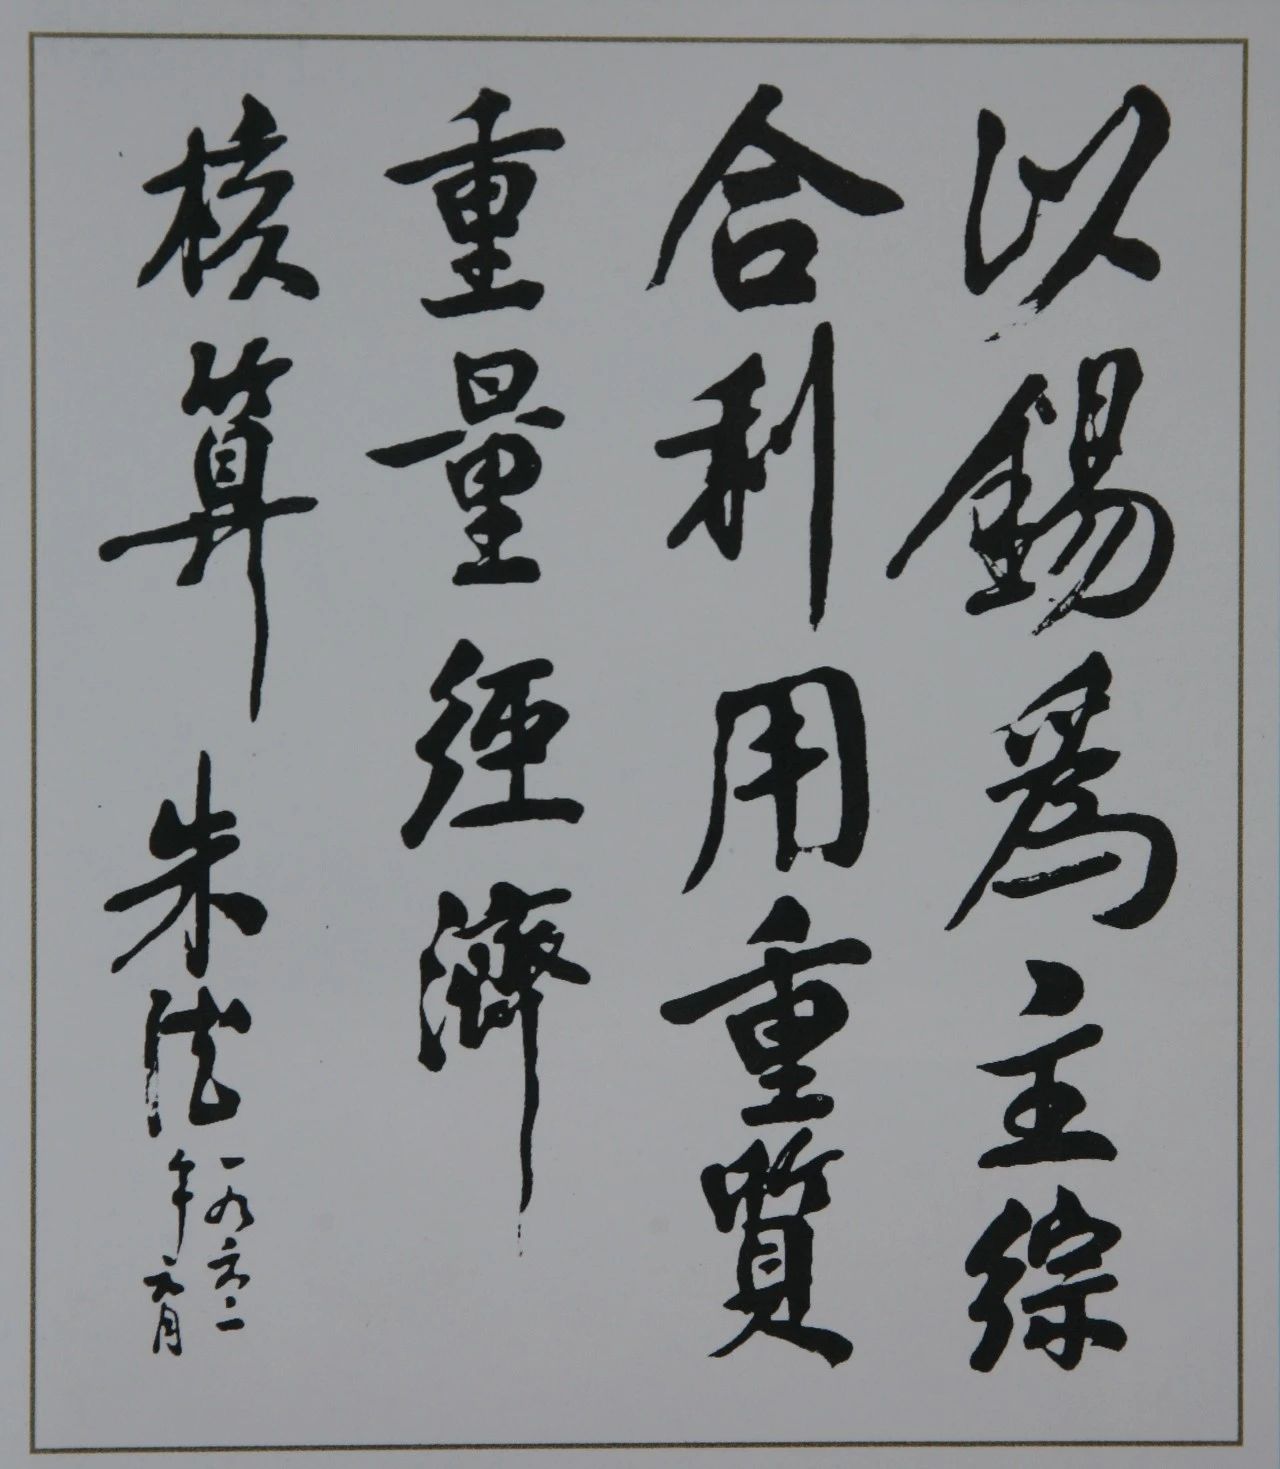 以錫爲主綜
合利用重質
重量經濟
核算 朱德
一九六二
年元月